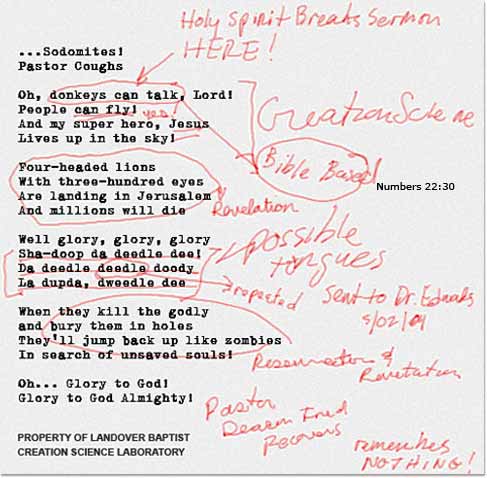 Holy Spirit Breaks Sermon
HERE!
...Sodomites!
Pastor Coughs
Oh, donkeys can talk, Lord!
People can fly! yes!
And my super hero, Jesus
Lives up in the sky!
Creation Science
Bible Based
Numbers 22:30
Four-headed lions
With three-hundred eyes
Are landing in Jerusalem
And millions will die
Revelation
Well glory, glory, glory
Sha-doop da deedle dee!
Da deedle deedle doody
La dupda, dweedle dee
possible
tongues
repeated
Sent to Dr.
5/02/04
When they kill the godly
and bury them in holes
They'll jump back up like zombies
In search of unsaved souls!
Resurrection &
Revelation
Oh... Glory to God!
Glory to God Almighty!
Pastor
Deacon Fred
Recovers
remembers
NOTHING!
PROPERTY OF LANDOVER BAPTIST
CREATION SCIENCE LABORATORY